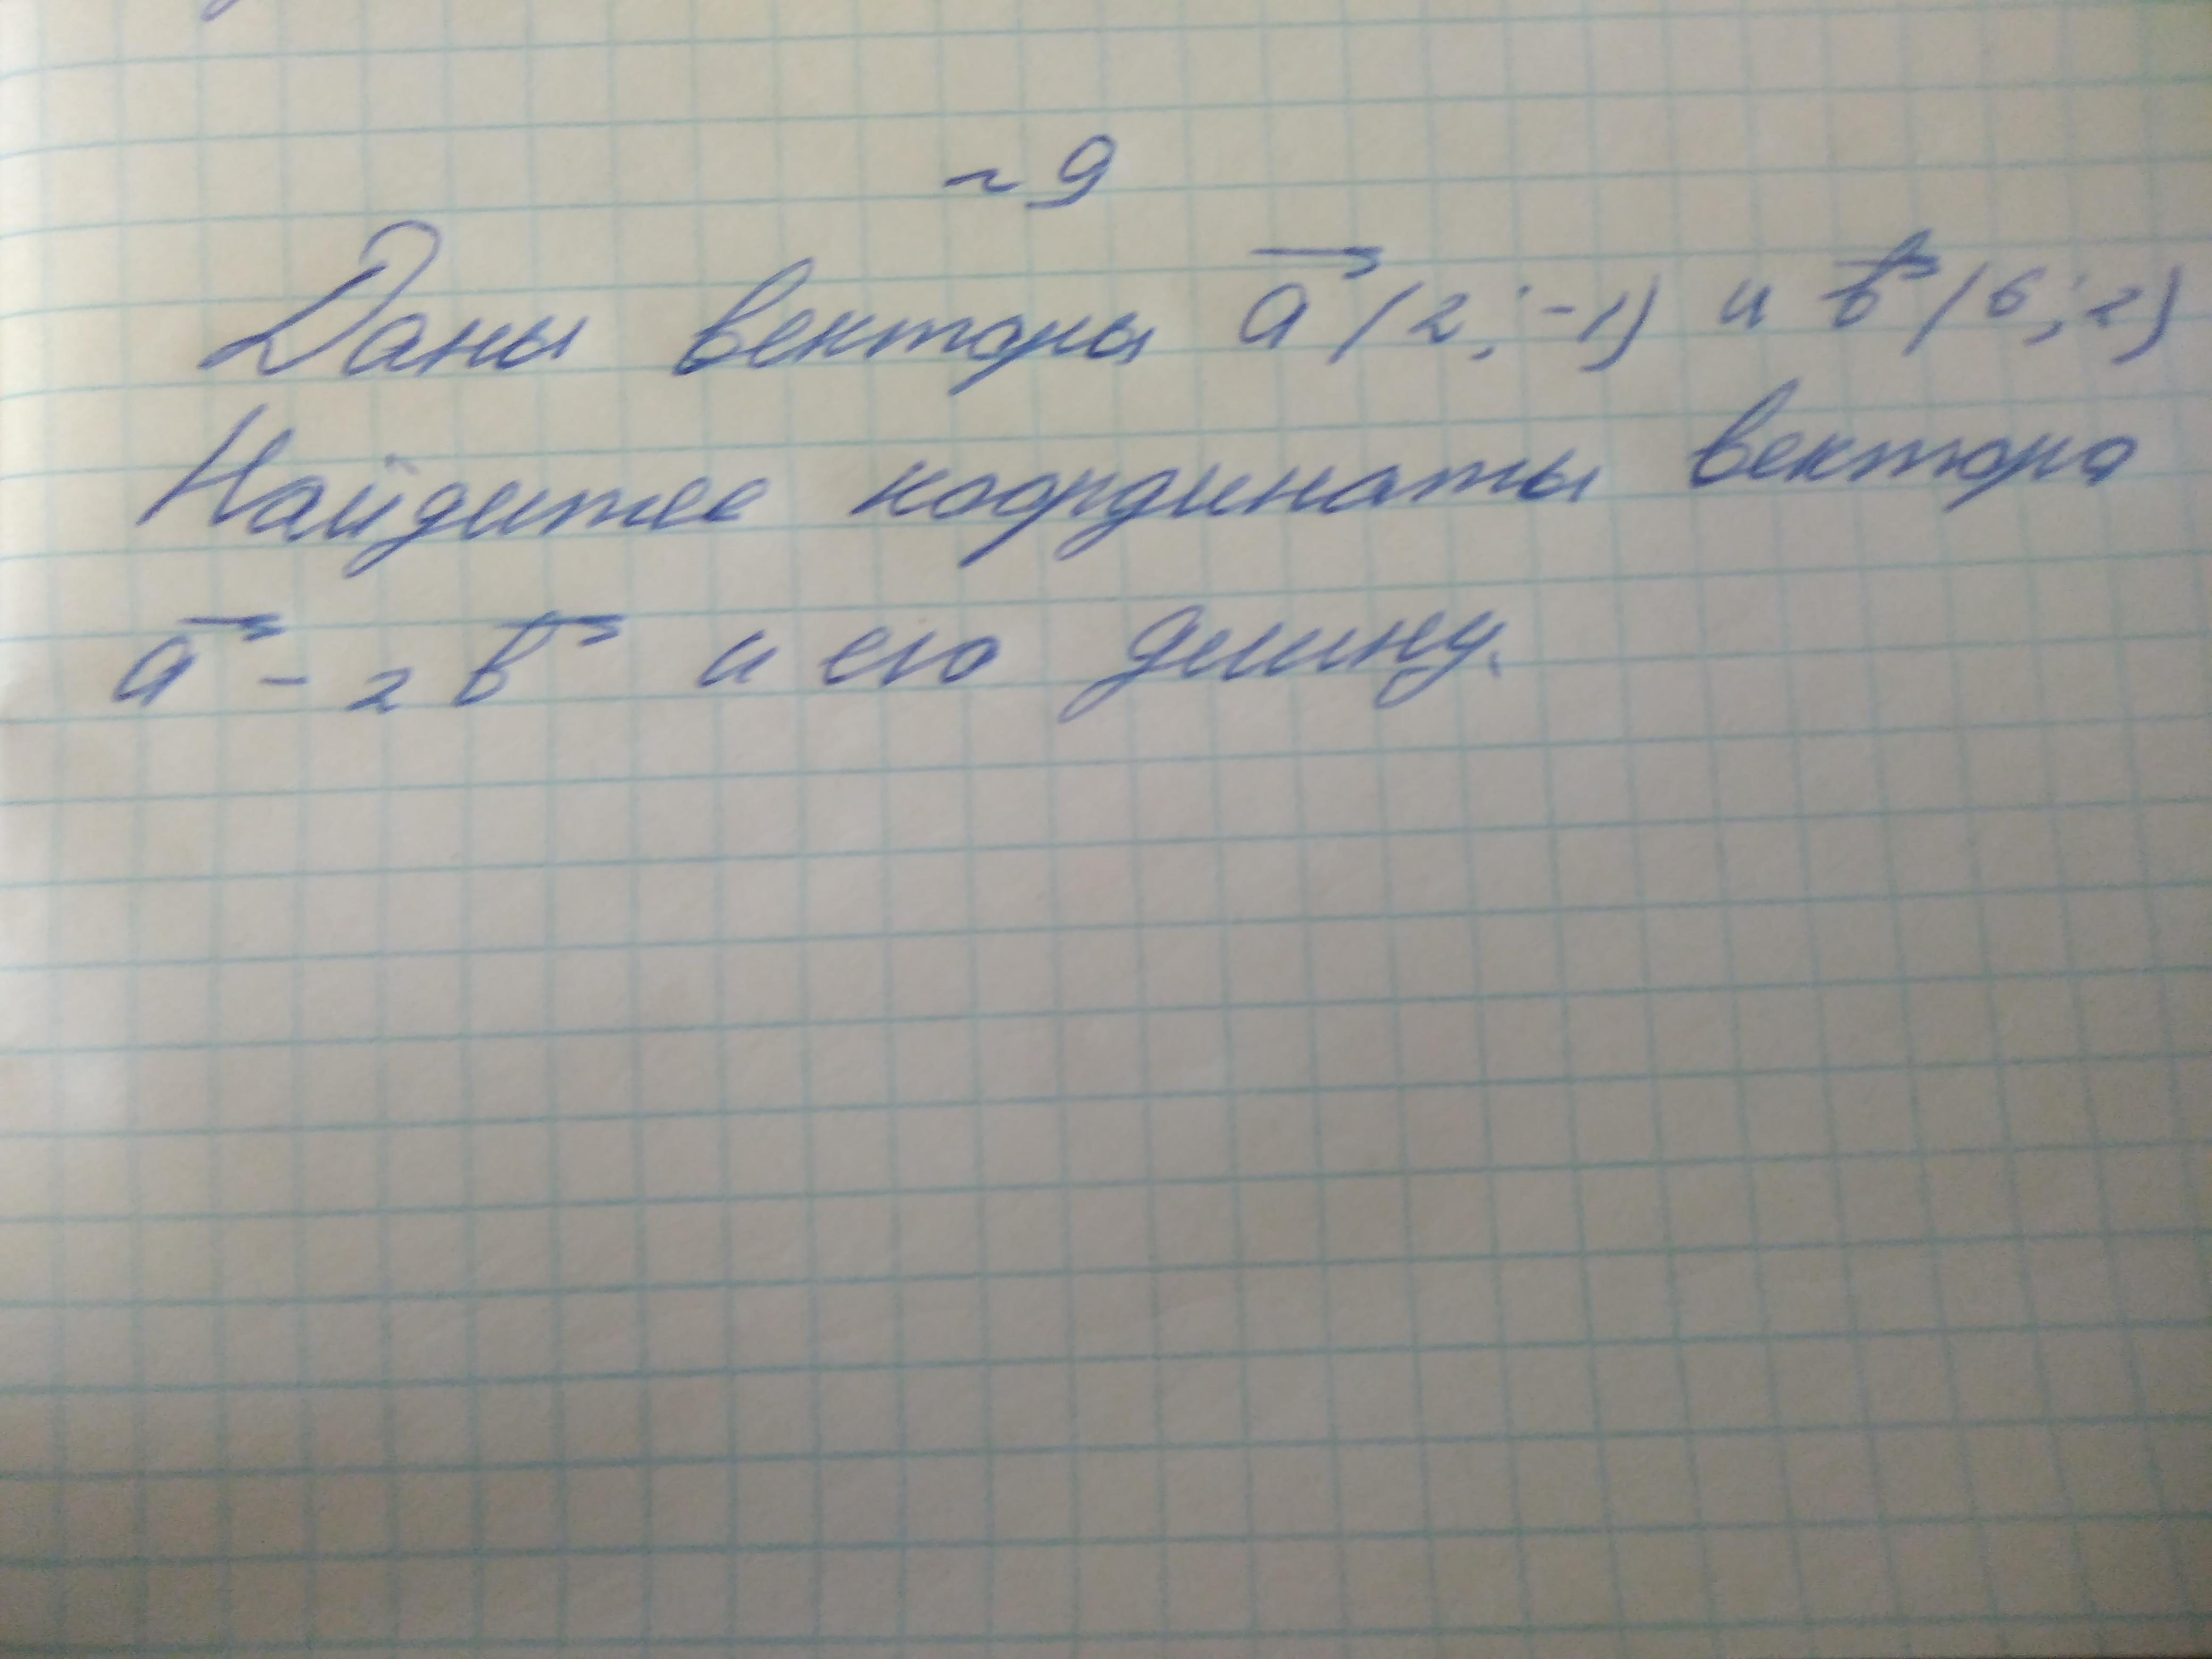 ~ 9
Даны векторы a⃗ (2; -1) и b⃗ (6; 2)
Найдите координаты вектора
a⃗ - 2 b⃗ и его длину.